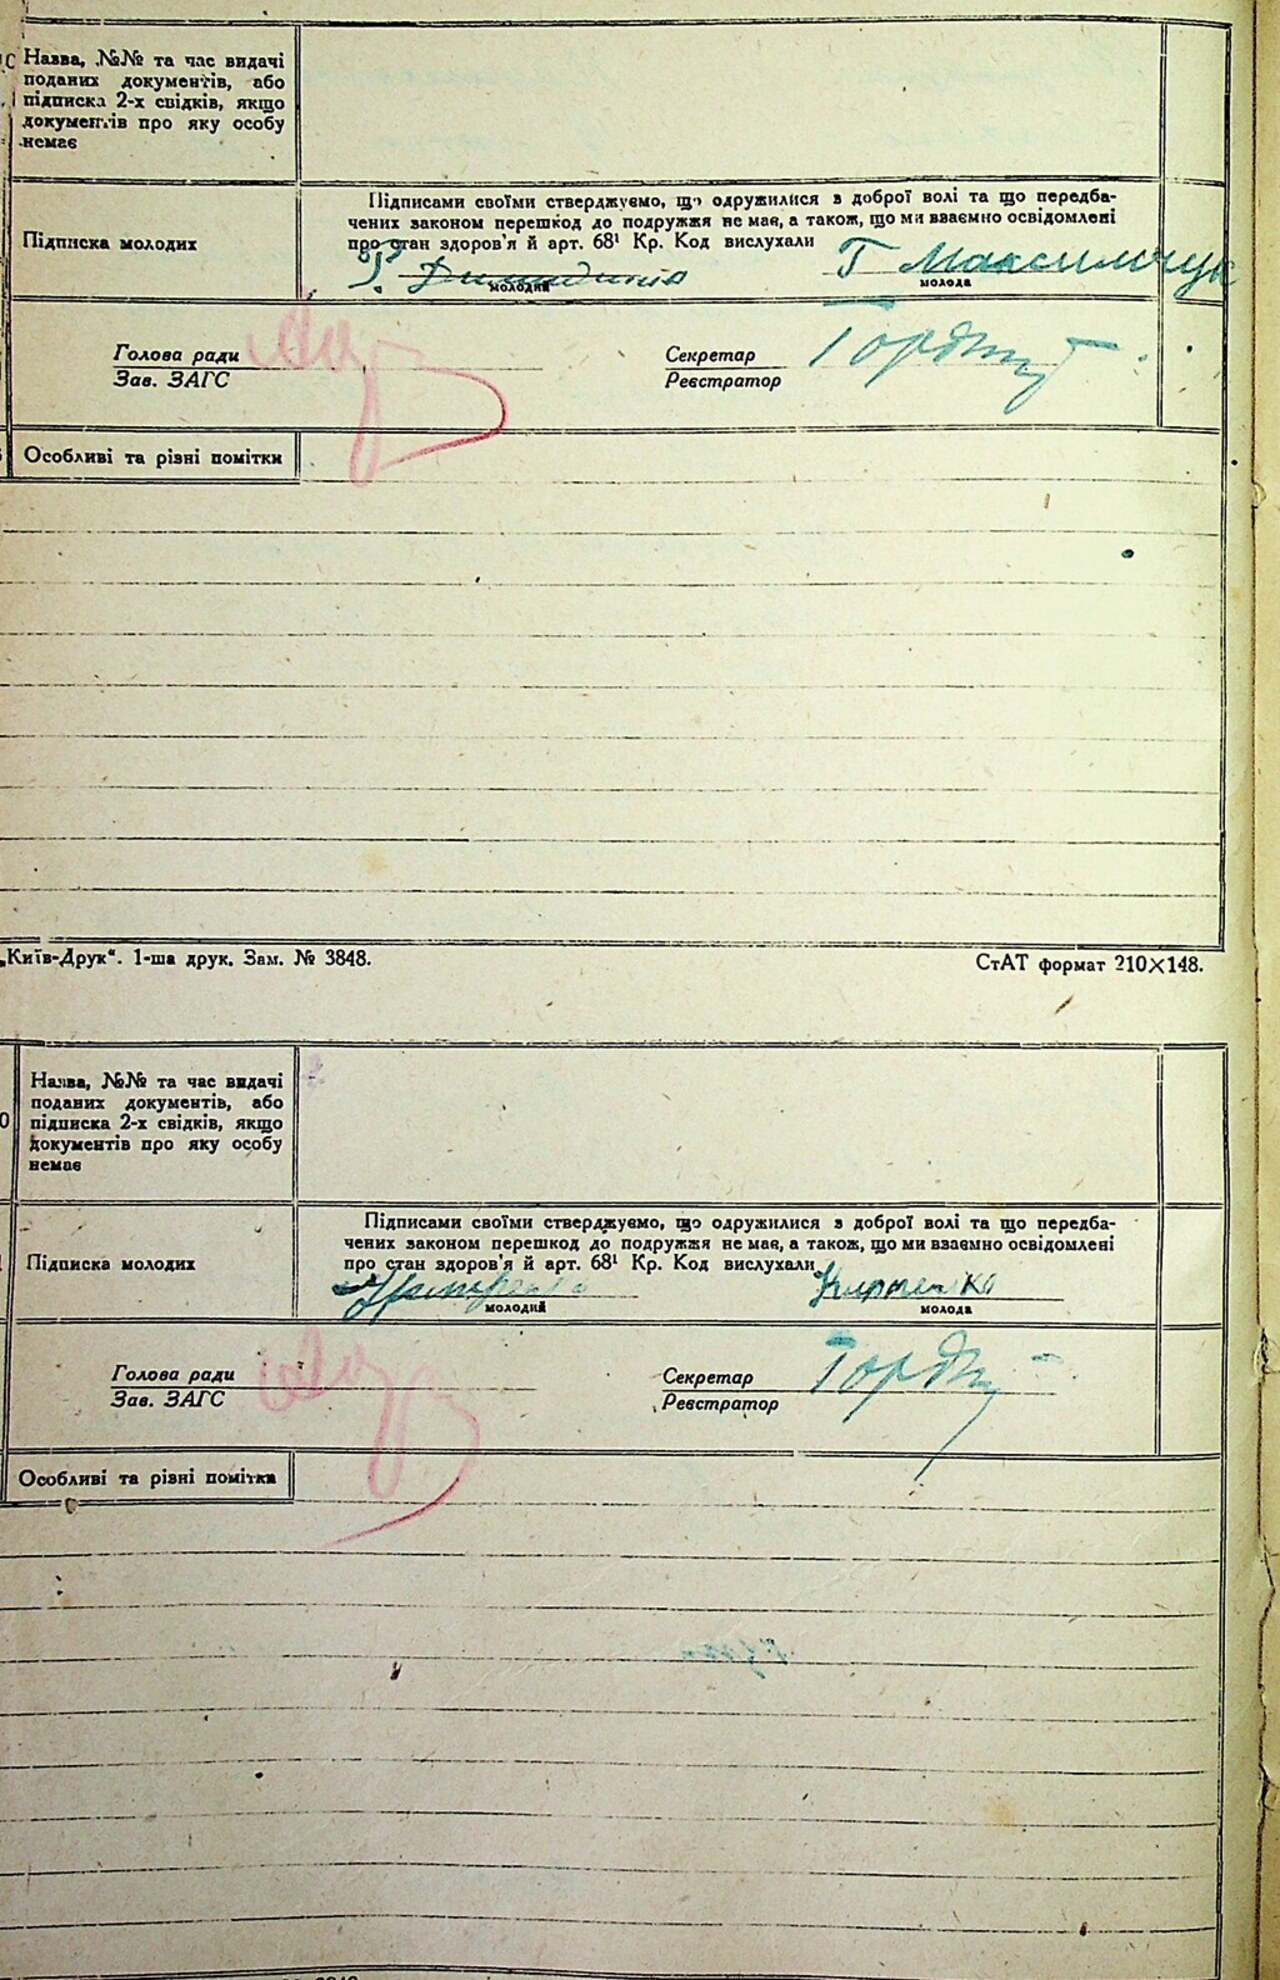 Назва, №№ та час видачі
поданих документів, або
підписка 2-х свідків, якщо
документів про яку особу
немає
Підписами своїми стверджуємо, що одружилися з доброї волі та що передба-
чених законом перешкод до подружжя не має, а також, що ми взаємно освідомлені
про стан здоров'я й арт. 68¹ Кр. Код вислухали
Підписка молодих
Г Максимчук
молодий молода
Голова ради Секретар
Зав. ЗАГС Реєстратор
Особливі та різні помітки
„Київ-Друк“. 1-ша друк. Зам. № 3848. СтАТ формат 210×148.
Назва, №№ та час видачі
поданих документів, або
підписка 2-х свідків, якщо
документів про яку особу
немає
Підписами своїми стверджуємо, що одружилися з доброї волі та що передба-
чених законом перешкод до подружжя не має, а також, що ми взаємно освідомлені
про стан здоров'я й арт. 68¹ Кр. Код вислухали
Підписка молодих
молодий молода
Голова ради Секретар
Зав. ЗАГС Реєстратор
Особливі та різні помітки